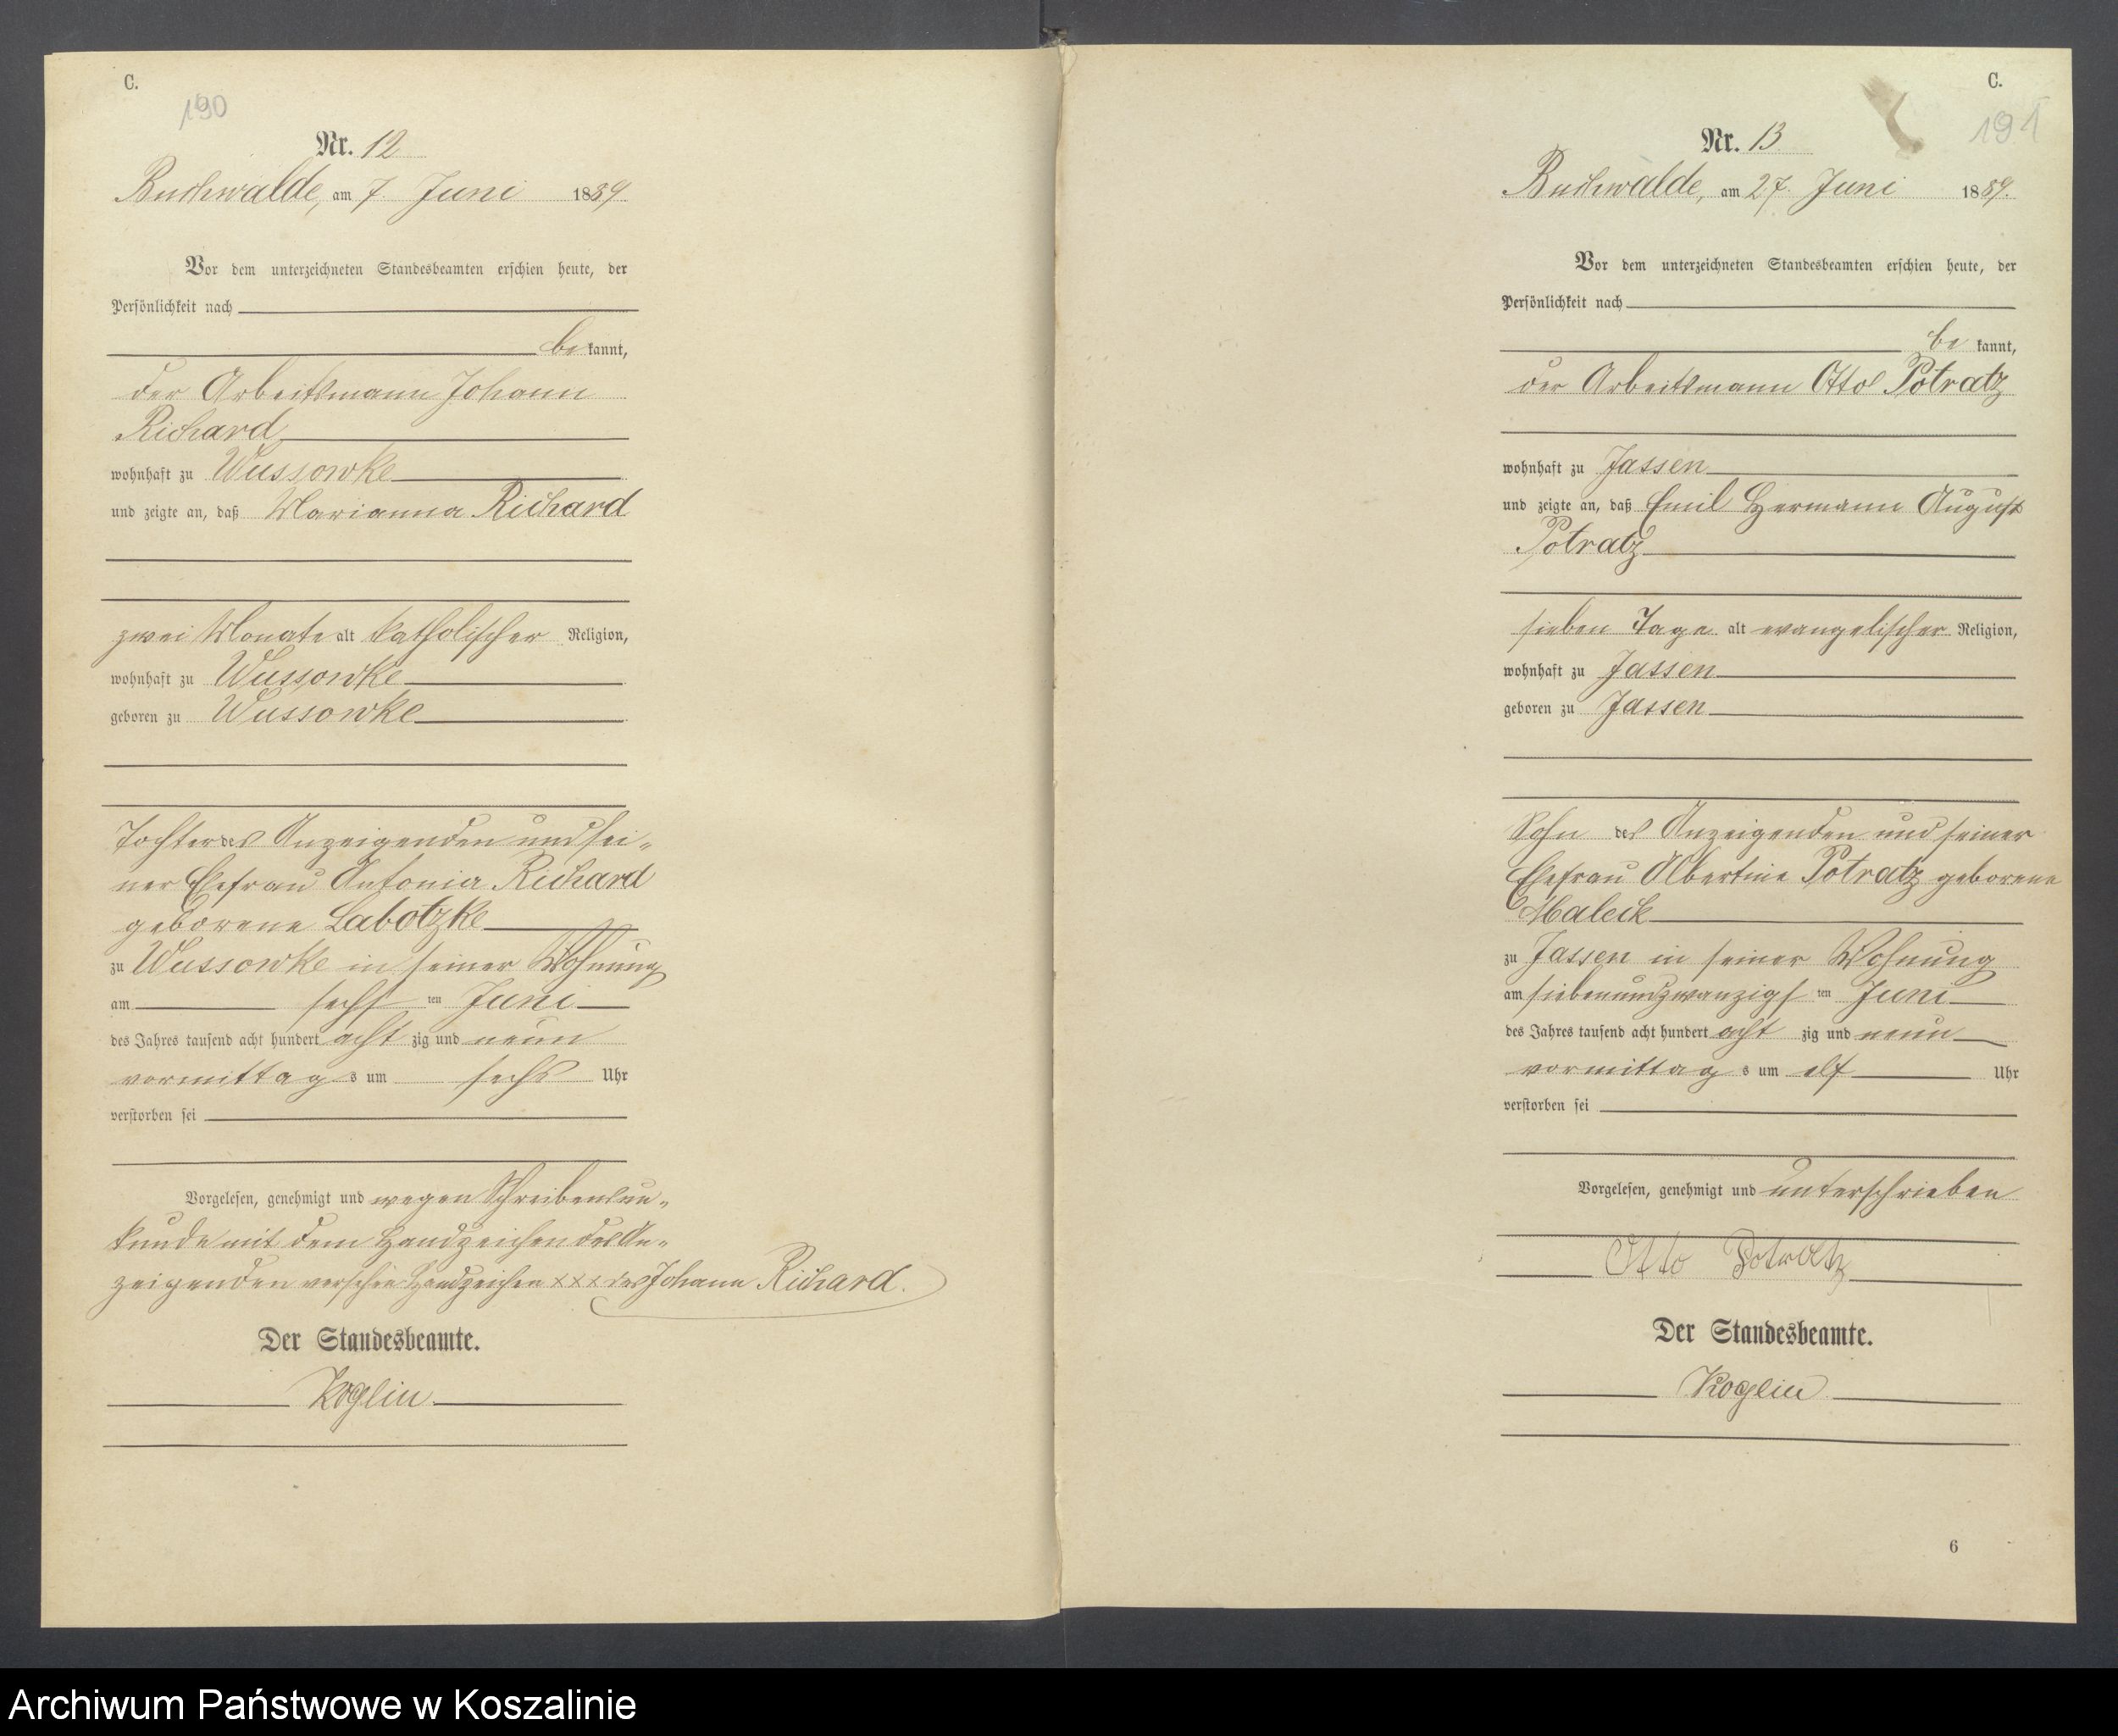 C.
190
Nr. 12
Buchwalde, am 7. Juni 1889.
Vor dem unterzeichneten Standesbeamten erschien heute, der
Persönlichkeit nach
bekannt,
der Arbeitsmann Johann
Richard
wohnhaft zu Wussowke
und zeigte an, daß Marianna Richard
zwei Monate alt katholischer Religion,
wohnhaft zu Wussowke
geboren zu Wussowke
Tochter des Anzeigenden und sei-
ner Ehefrau Antonia Richard
geborene Labotzke
zu Wussowke in seiner Wohnung
am sechsten Juni
des Jahres tausend acht hundert achtzig und neun
vormittags um sechs Uhr
verstorben sei
Vorgelesen, genehmigt und wegen Schreibensun-
kunde mit dem Handzeichen des An-
zeigenden versehen Handzeichen xxx des Johann Richard.
Der Standesbeamte.
Koglin
C.
191
Nr. 13
Buchwalde, am 27. Juni 1889.
Vor dem unterzeichneten Standesbeamten erschien heute, der
Persönlichkeit nach
bekannt,
der Arbeitsmann Otto Potratz
wohnhaft zu Jassen
und zeigte an, daß Emil Hermann August
Potratz
sieben Tage alt evangelischer Religion,
wohnhaft zu Jassen
geboren zu Jassen
Sohn des Anzeigenden und seiner
Ehefrau Albertine Potratz geborene
Maleck
zu Jassen in seiner Wohnung
am siebenundzwanzigsten Juni
des Jahres tausend acht hundert achtzig und neun
vormittags um elf Uhr
verstorben sei
Vorgelesen, genehmigt und unterschrieben
Otto Potratz
Der Standesbeamte.
Koglin
6
Archiwum Państwowe w Koszalinie